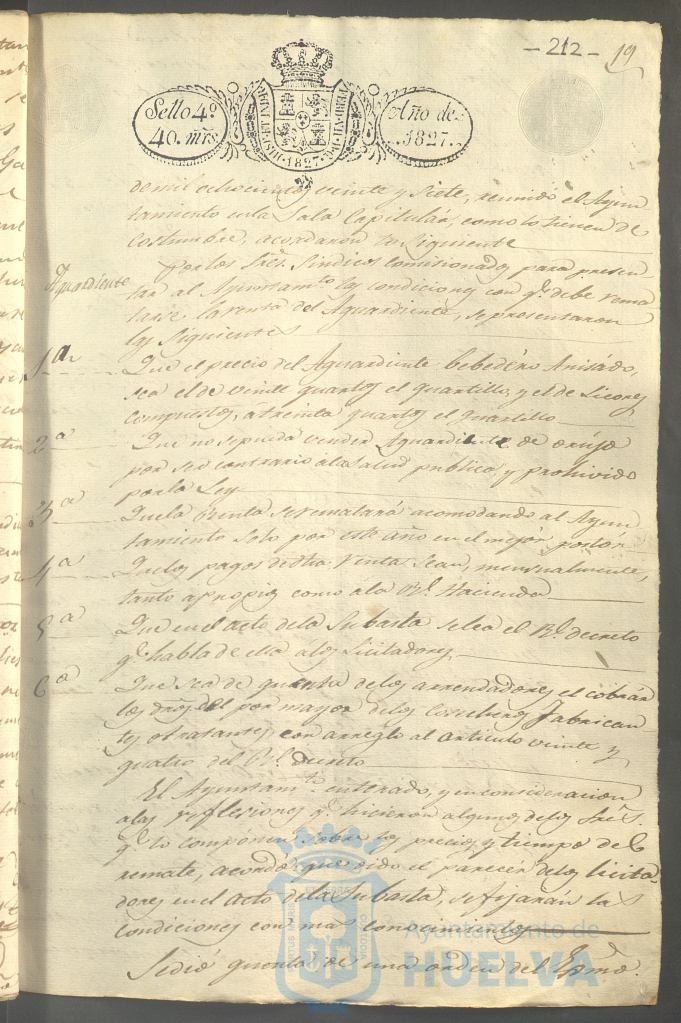 - 212 - 19
Sello 4º
40. mrs
HISPANIARUM REX 1827.
Año de
1827.
de mil ochocientos veinte y siete, reunido el Ayun
tamiento en la Sala Capitular, como lo tienen de
costumbre, acordaron lo siguiente
Aguardiente
Por los Sres. Sindicos Comisionados para presen
tar al Ayuntamto. las condiciones con q.e debe rema
tarse la renta del Aguardiente, se presentaron
las siguientes
1a
Que el precio del Aguardiente bebedero Anisado,
sea el de veinte quartos el quartillo, y el de Licores
compuestos, a treinta quartos el quartillo
2a
Que no se pueda vender Aguardiente de orujo
por ser contrario a la salud publica, y prohivido
por la Ley
3a
Que la Renta se rematará acomodando al Ayun
tamiento solo por este año en el mejor postór
4a
Que los pagos de dha Renta sean, mensualmente,
tanto á propios como a la Rl. Hacienda
5a
Que en el acto de la Subasta se lea el Rl. decreto
q.e habla de ella á los Licitadores
6a
Que sea de quenta de los arrendadores el cobrár
los dros del por mayor de los Cosecheros Fabrican
tes ó tratantes, con arreglo al articulo veinte y
quatro del Rl. Decreto
El Ayuntamto. enterado, y en consideracion
a las reflexiones q.e hicieron algunos de los Sres.
q.e lo componen sobre los precios y tiempo del
remate, acordó que oido el parecer de los licita-
dores en el acto de la Subasta, se fijarán las
condiciones con mas conocimiento
Se dió quenta de una orden del Ypmo.
Ayuntamiento de
HUELVA